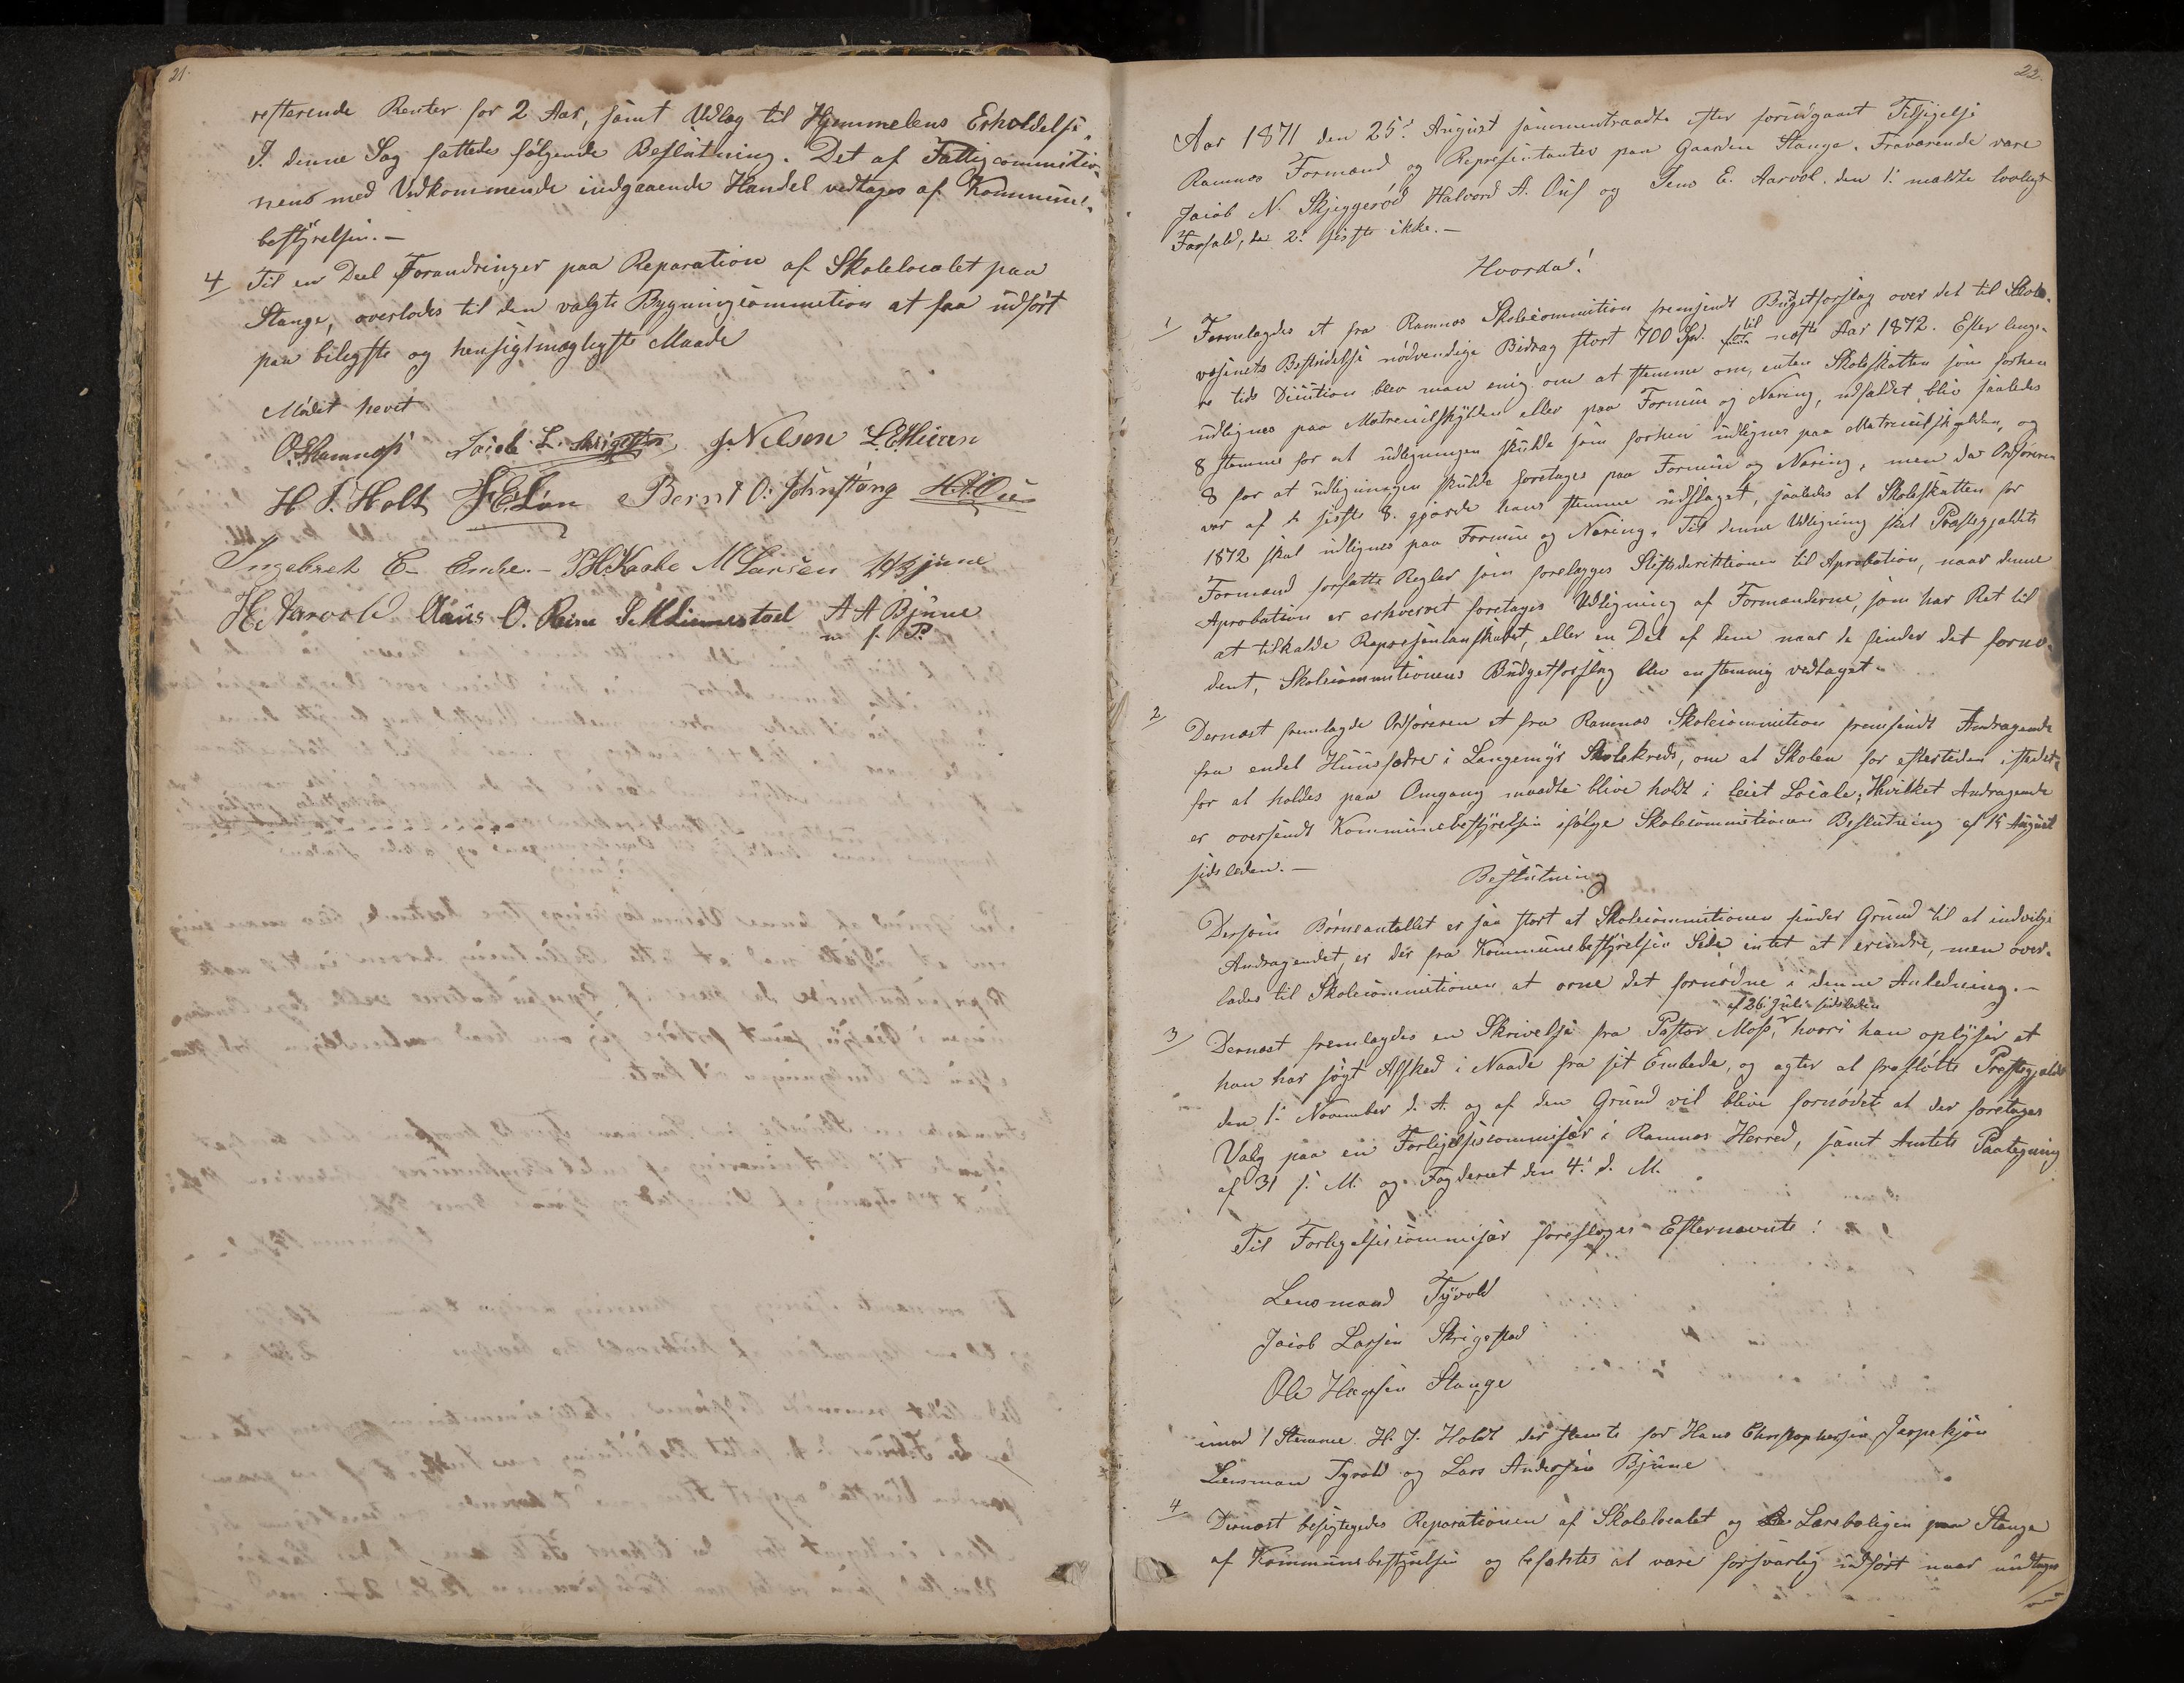 21.
resterende Renter for 2 Aar, samt Udlæg til Hjemmelens Erholdelse.
I denne Sag fattedes følgende Beslutning. Det af Fattigcommitio-
nens med Vedkommende indgaaende Handel vedtages af Kommune-
bestyrelsen. —
4/ Til en Deel Forandringer paa Reparation af Skolelocalet paa
Stange, overlodes til den valgte Bygningscommition at faa udført
paa biligste og hensigtmæsigste Maade
Mødet hævet
O. Ramnæs Jacob L. Skrigstad J. Nilsen
H. J. Holt Bernt O. H. A. Ous
Ingebret C. Enhe. — P. H. Kaabe M Larsen
H. Aarvold Claus O. Reine A A Bjune
m f. P.
22.
Aar 1871 den 25d August sammentraadte efter foriudgaaet Tilsigelse
Ramnæs Formænd og Repræsentanter paa Gaarden Stange. Fraværende vare
Jacob N. Skjeggerød Halvord A. Ous og Jens E. Aarvol. den 1: mældte lovligt
Forfald, de 2: siste ikke. —
Hvorda!
1/ Fremlagdes et fra Ramnæs Skolecommition fremsendt Budgetforslag over det til Skole-
væsenets Bestridelse nødvendige Bidrag stort 700 Spd. til næste Aar 1872. Efter lenge-
re tids Discution blev man enig om at stemme om, enten Skoleskatten som forhen
udlignes paa Matreculskylden eller paa Formue og Næring, udfaldet blev saaledes
8 stemme for at udligningen skulde som forhen udlignes paa Matreculskylden, og
8 for at udligningen skulde foretages paa Formue og Næring, men da Ordføreren
var af de siste 8. gjorde hans stemme udslaget, saaledes at Skoleskatten for
1872 skal udlignes paa Formue og Næring. Til denne Udligning skal Præstegjældets
Formænd forfatte Regler som forelægges Stiftsdirektionen til Aprobation, naar denne
Aprobation er erhvervet foretages Udligning af Formænderne, som har Ret til
at tilkalde Repræsentanskabet, eller en Del af dem naar de finder det fornø-
dent, Skolecommitionens Budgetforslag blev enstemmig vedtaget.
2/ Dernæst fremlagde Ordføreren et fra Ramnæs Skolecommition fremsendt Andragende
fra endel Huusfædre i Langemyr Skolekreds, om at Skolen for eftertiden istedet-
for at holdes paa Omgang maatte blive holdt i leiet Locale, Hvilket Andragende
er oversendt Kommunebestyrelsen ifølge Skolecommitionens Beslutning af 15 August
sidsleden. —
Beslutning
Dersom Børneantallet er saa stort at Skolecommitionen finder Grund til at indvilge
Andragendet, er der fra Kommunebestyrelsen Side intet at erindre, men over-
lades til Skolecommitionen at orne det fornødne i denne Anledning. —
af 26 Juli sidsleden
3/ Dernæst fremlagdes en Skrivelse fra Pastor Moss, hvori han oplyser at
han har søgt Afsked i Naade fra sit Embede, og agter at fraflötte Præstegjeldet
den 1: November d. A. og af den Grund vil blive fornødet at der foretages
Valg paa en Forligelsescommisær i Ramnæs Herred, samt Amtets Paategning
af 31 f. M. og Fogderiet den 4: d. M.
Til Forligelsescommisær foreslages Efternævnte!
Lensmand Tyvold
Jacob Larsen Skrigestad
Ole Hansen Stange
imod 1 Stemme H. J. Holdt der stemte for Hans Christophersen Jerpekjøn
Lensman Tyvold og Lars Andersen Bjune
4/ Dernæst besigtigedes Reparationen af Skolelocalet og Lærboligen paa Stange
af Kommunebestyrelsen og befantes at være forsvarlig udført naar undtages